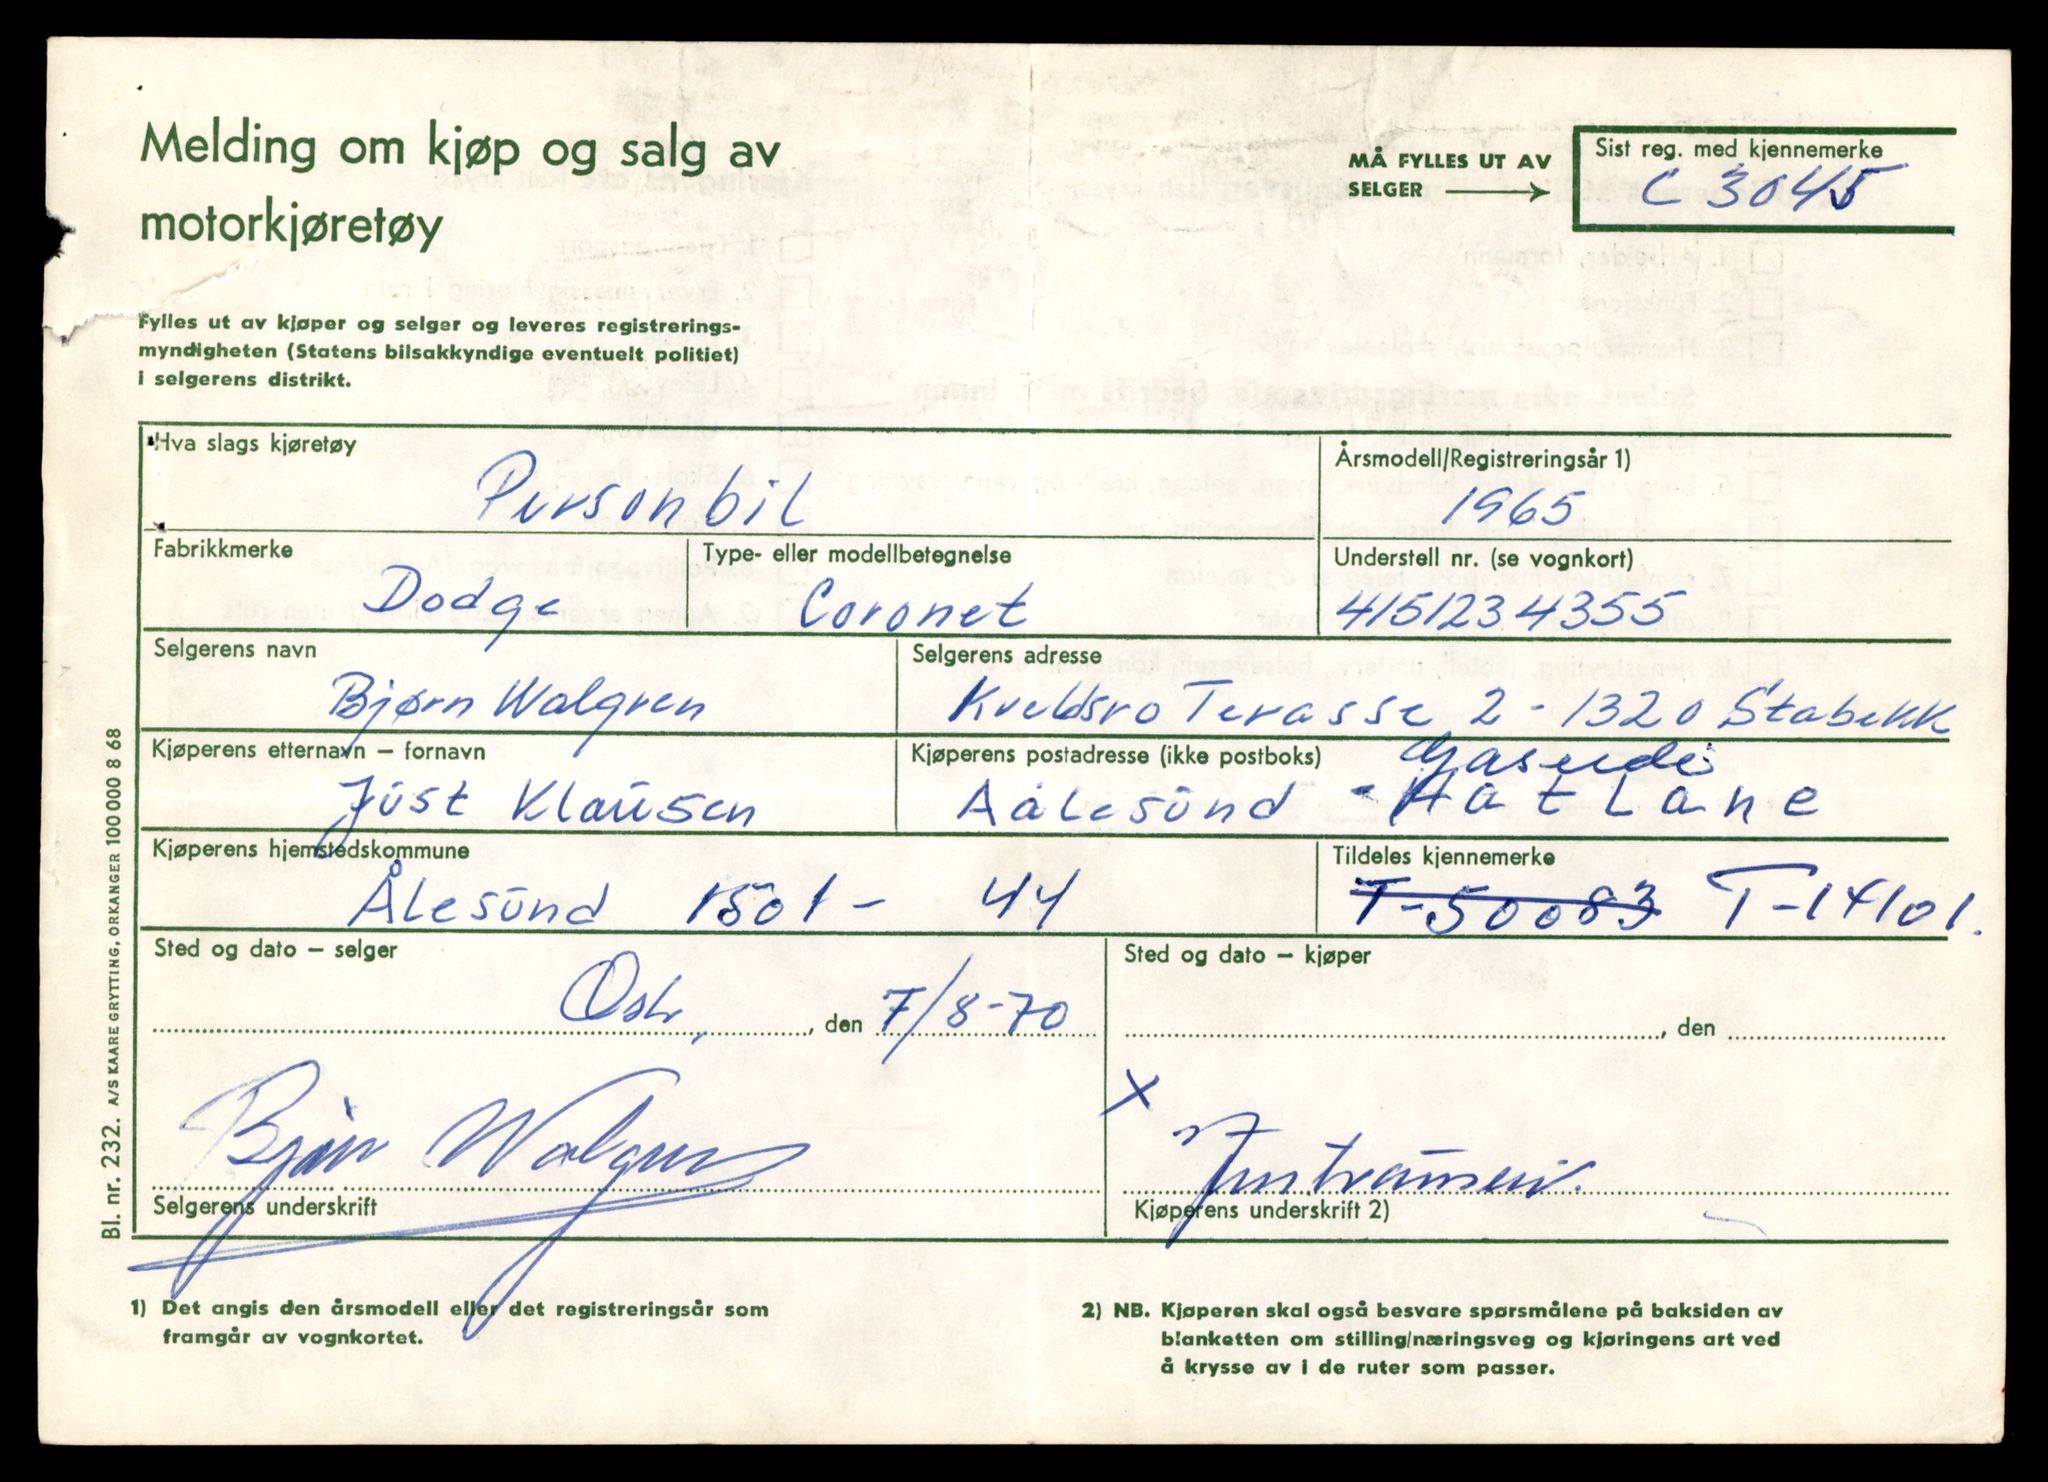 Melding om kjøp og salg av
motorkjøretøy
MÅ FYLLES UT AV
SELGER
Sist reg. med kjennemerke
C 3045
Fylles ut av kjøper og selger og leveres registrerings-
myndigheten (Statens bilsakkyndige eventuelt politiet)
i selgerens distrikt.
Hva slags kjøretøy
Personbil
Årsmodell/Registreringsår 1)
1965
Fabrikkmerke
Dodge
Type- eller modellbetegnelse
Coronet
Understell nr. (se vognkort)
4151234355
Selgerens navn
Bjørn Walgren
Selgerens adresse
Kveldsro Terasse 2 - 1320 Stabekk
Kjøperens etternavn – fornavn
Just Klausen
Kjøperens postadresse (ikke postboks)
Aålesund - Hatlane
Kjøperens hjemstedskommune
Ålesund 1501 - 44
Tildeles kjennemerke
T-50083 T-14101.
Sted og dato – selger
Oslo, den 7/8-70
Sted og dato – kjøper
, den
Bjørn Walgren
Selgerens underskrift
X
Kjøperens underskrift 2)
1) Det angis den årsmodell eller det registreringsår som
framgår av vognkortet.
2) NB. Kjøperen skal også besvare spørsmålene på baksiden av
blanketten om stilling/næringsveg og kjøringens art ved
å krysse av i de ruter som passer.
Bl. nr. 232. A/S KAARE GRYTTING, ORKANGER 100 000 8 68